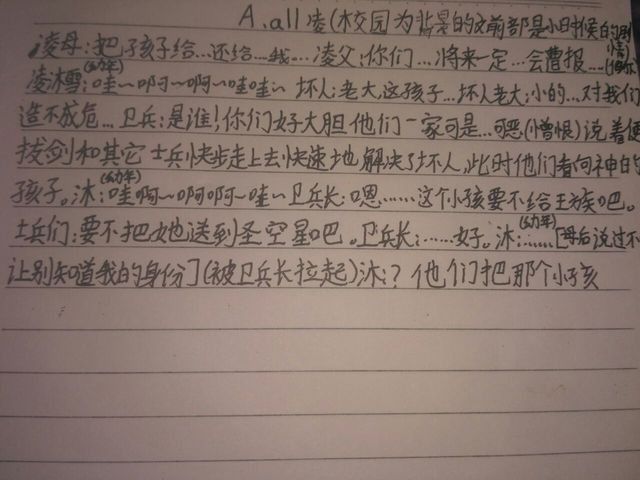 A.all凌(校园为背景的文前部是小时候的剧情)
凌母:把孩子给…还给…我… 凌父:你们…将来一定…会遭报…
凌沐雪(幼年):哇~啊~啊~哇哇~ 坏人:老大,这孩子…坏人老大:小的…对我们
造不成危…卫兵:是谁!你们好大胆他们一家可是…可恶(憎恨)说着便
拔剑和其它士兵快步走上去快速地解决了坏人,此时他们看向神的
孩子。沐(幼年):哇啊~啊啊~哇~卫兵长:嗯……这个小孩要不给王族吧。
士兵们:要不把她送到圣空星吧。卫兵长:……好。沐(幼年):……[母后说过不
让别知道我的身份](被卫兵长拉起)沐:?他们把那个小孩